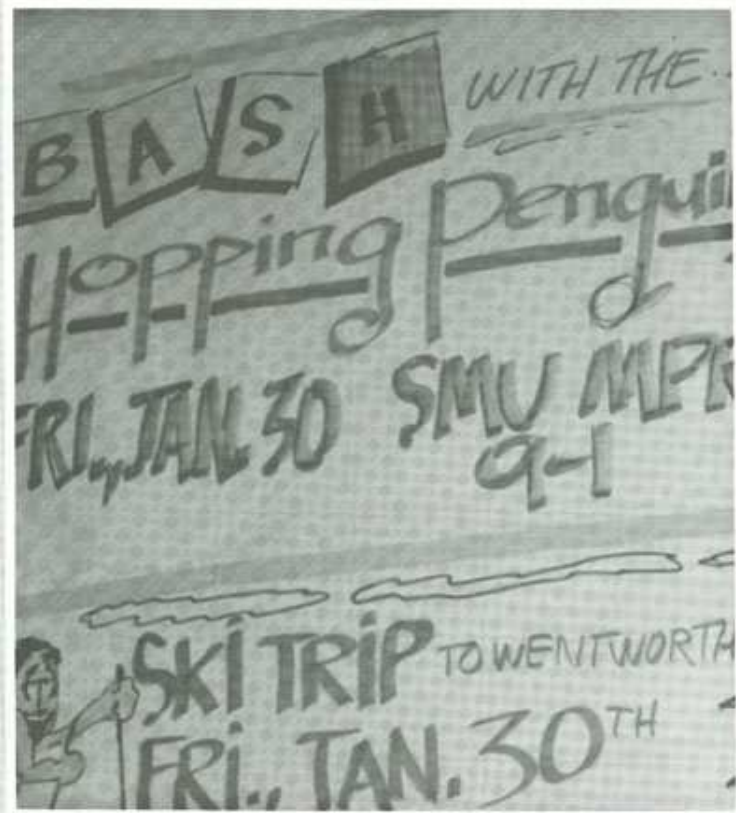 BASH WITH THE..
Hopping Pengui
FRI., JAN. 30 SMU MPR
9-1
SKI TRIP TO WENTWORTH
FRI., JAN. 30TH